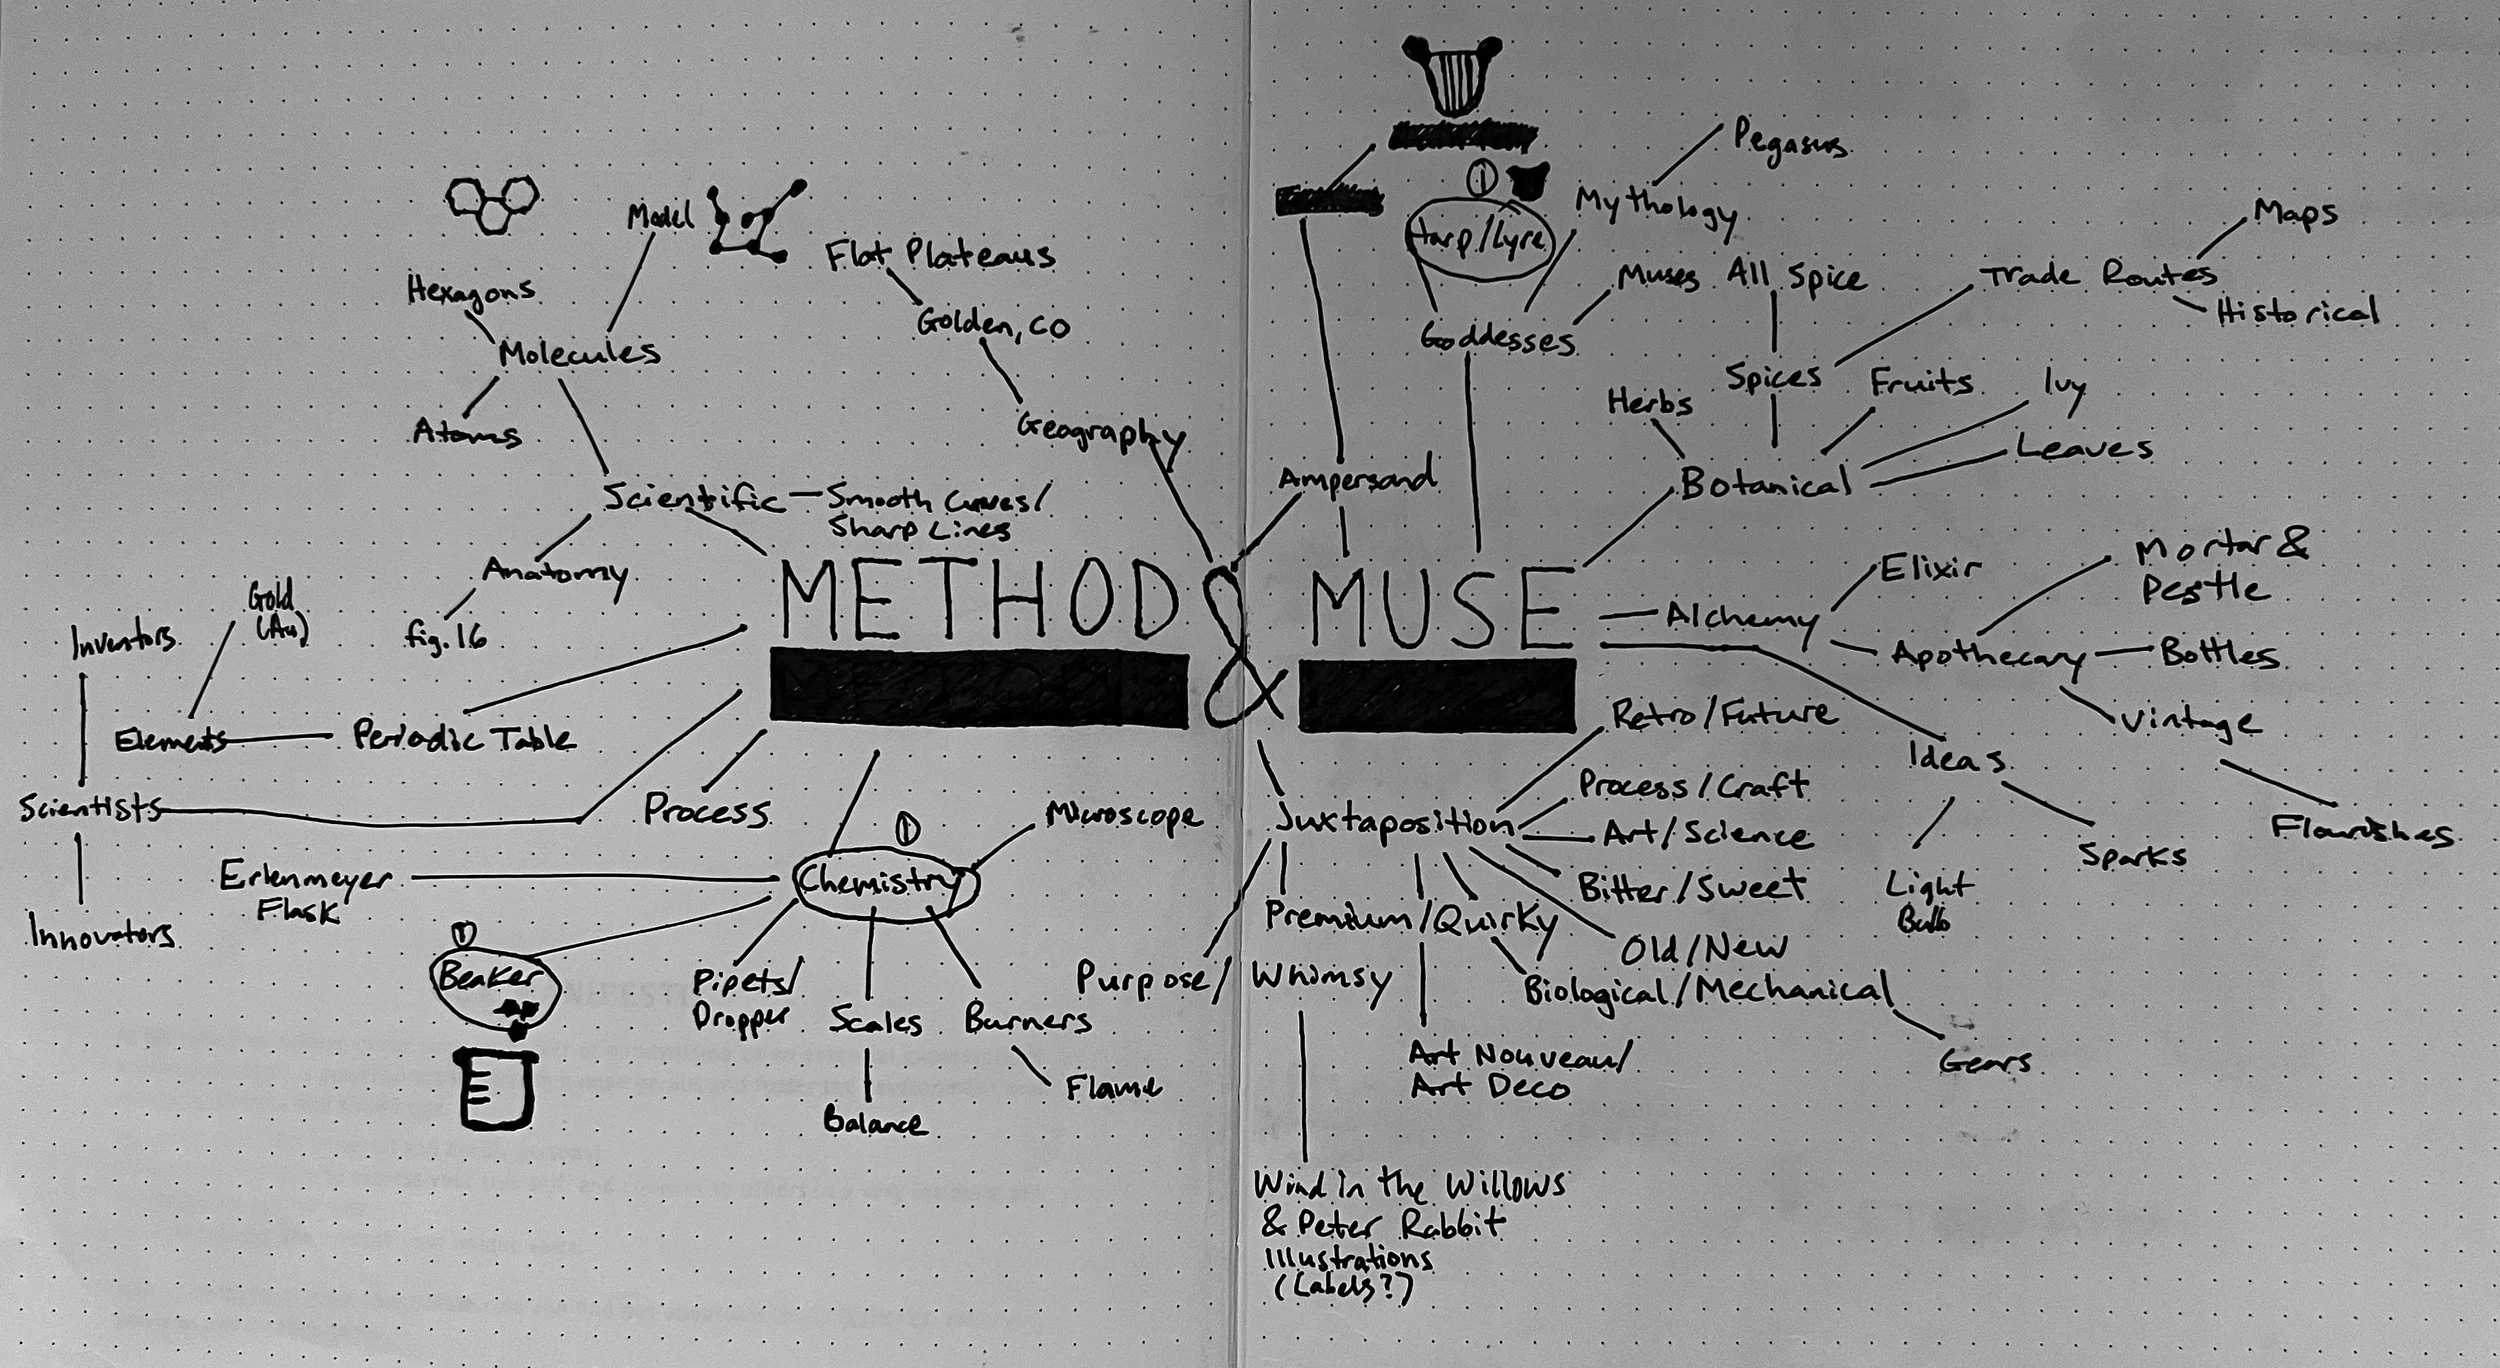 Pegasus
①
Model
Mythology
Harp/Lyre
Maps
Flat Plateaus
Muses
All Spice
Trade Routes
Hexagons
Golden, CO
Historical
Goddesses
Molecules
Spices
Fruits
Ivy
Herbs
Atoms
Geography
Leaves
Ampersand
Botanical
Scientific
Smooth Curves/
Sharp Lines
Anatomy
Elixir
Mortar &
Pestle
METHOD & MUSE
Gold
(Au)
Alchemy
Inventors
fig. 16
Apothecary
Bottles
Retro/Future
Vintage
Elements
Periodic Table
Ideas
Process/Craft
Scientists
Process
Microscope
Juxtaposition
Art/Science
Flourishes
①
Sparks
Erlenmeyer
Flask
Chemistry
Bitter/Sweet
Light
Bulb
Premium/Quirky
Innovators
①
Old/New
Beaker
Pipets/
Dropper
Purpose/Whimsy
Biological/Mechanical
Scales
Burners
Art Nouveau/
Art Deco
Gears
Flame
Balance
Wind in the Willows
& Peter Rabbit
Illustrations
(Labels?)